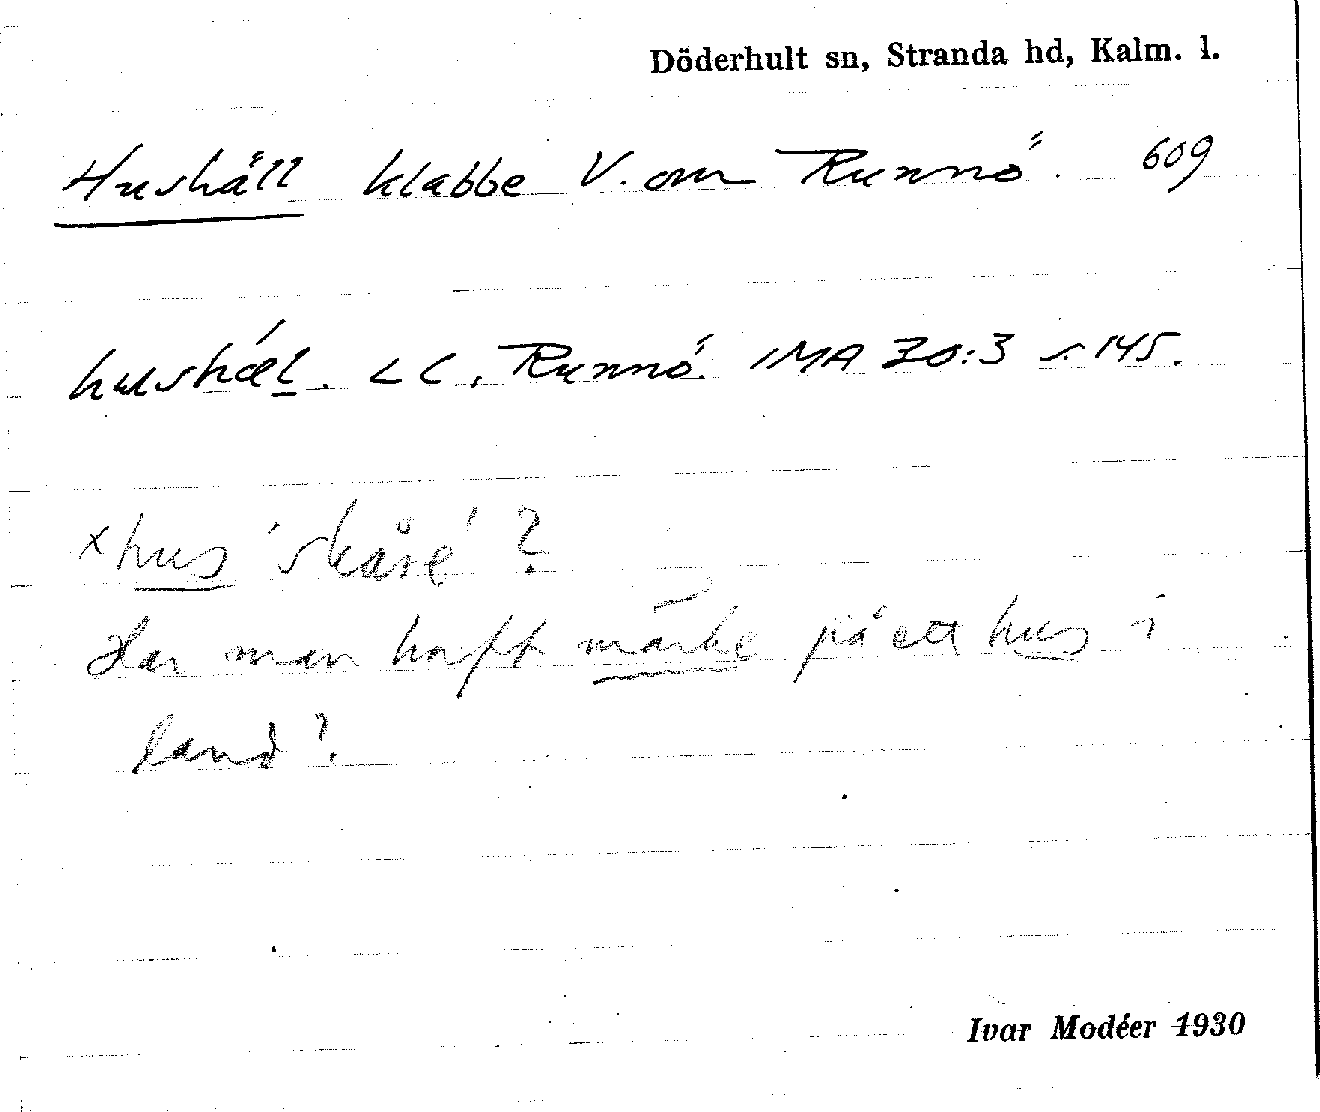 Döderhult sn, Stranda hd, Kalm. l.
Hushäll klabbe V. om Runnö. 609
hushæl. LC, Runnö. IMA 30:3 s. 145.
x hus 'skäre'?
Har man haft märke på ett hus i
land?
Ivar Modéer 1930